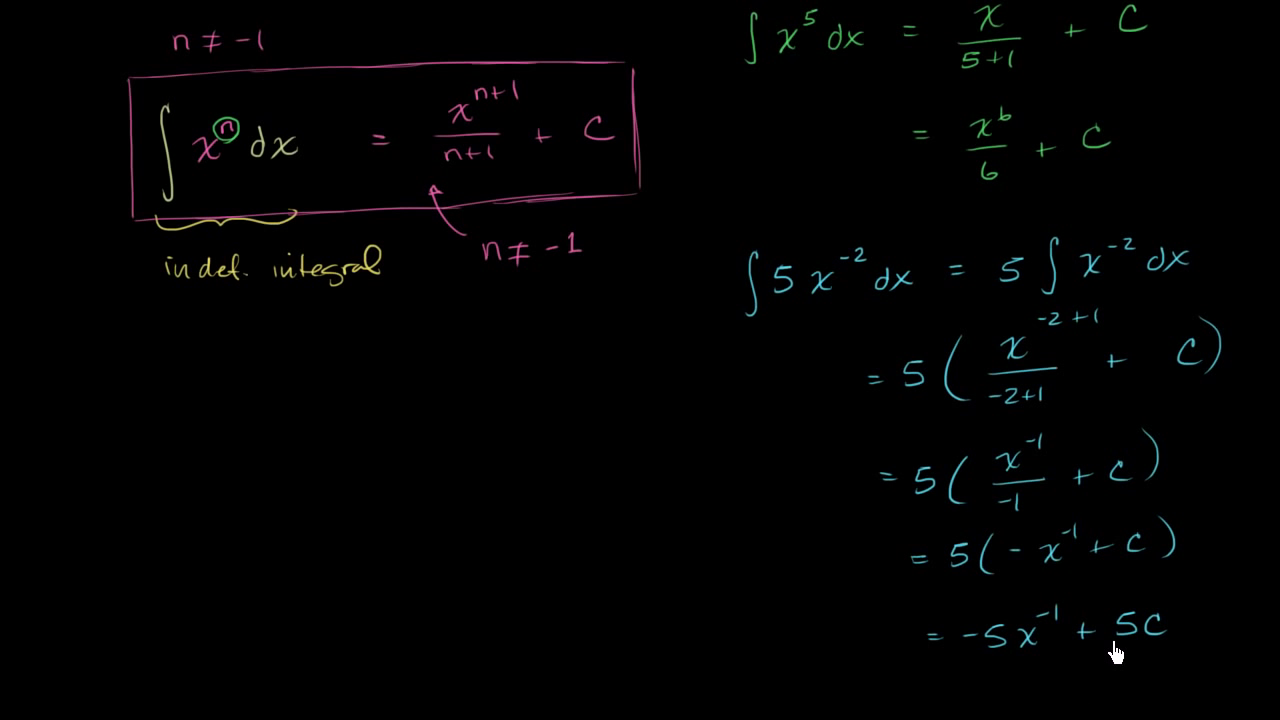 n ≠ -1
∫ xⁿ dx = xⁿ⁺¹/(n+1) + C
n ≠ -1
indef. integral
∫ x⁵ dx = x/(5+1) + C
= x⁶/6 + C
∫ 5x⁻² dx = 5 ∫ x⁻² dx
= 5 ( x⁻²⁺¹/(-2+1) + C )
= 5 ( x⁻¹/-1 + C )
= 5 ( - x⁻¹ + C )
= -5x⁻¹ + 5C